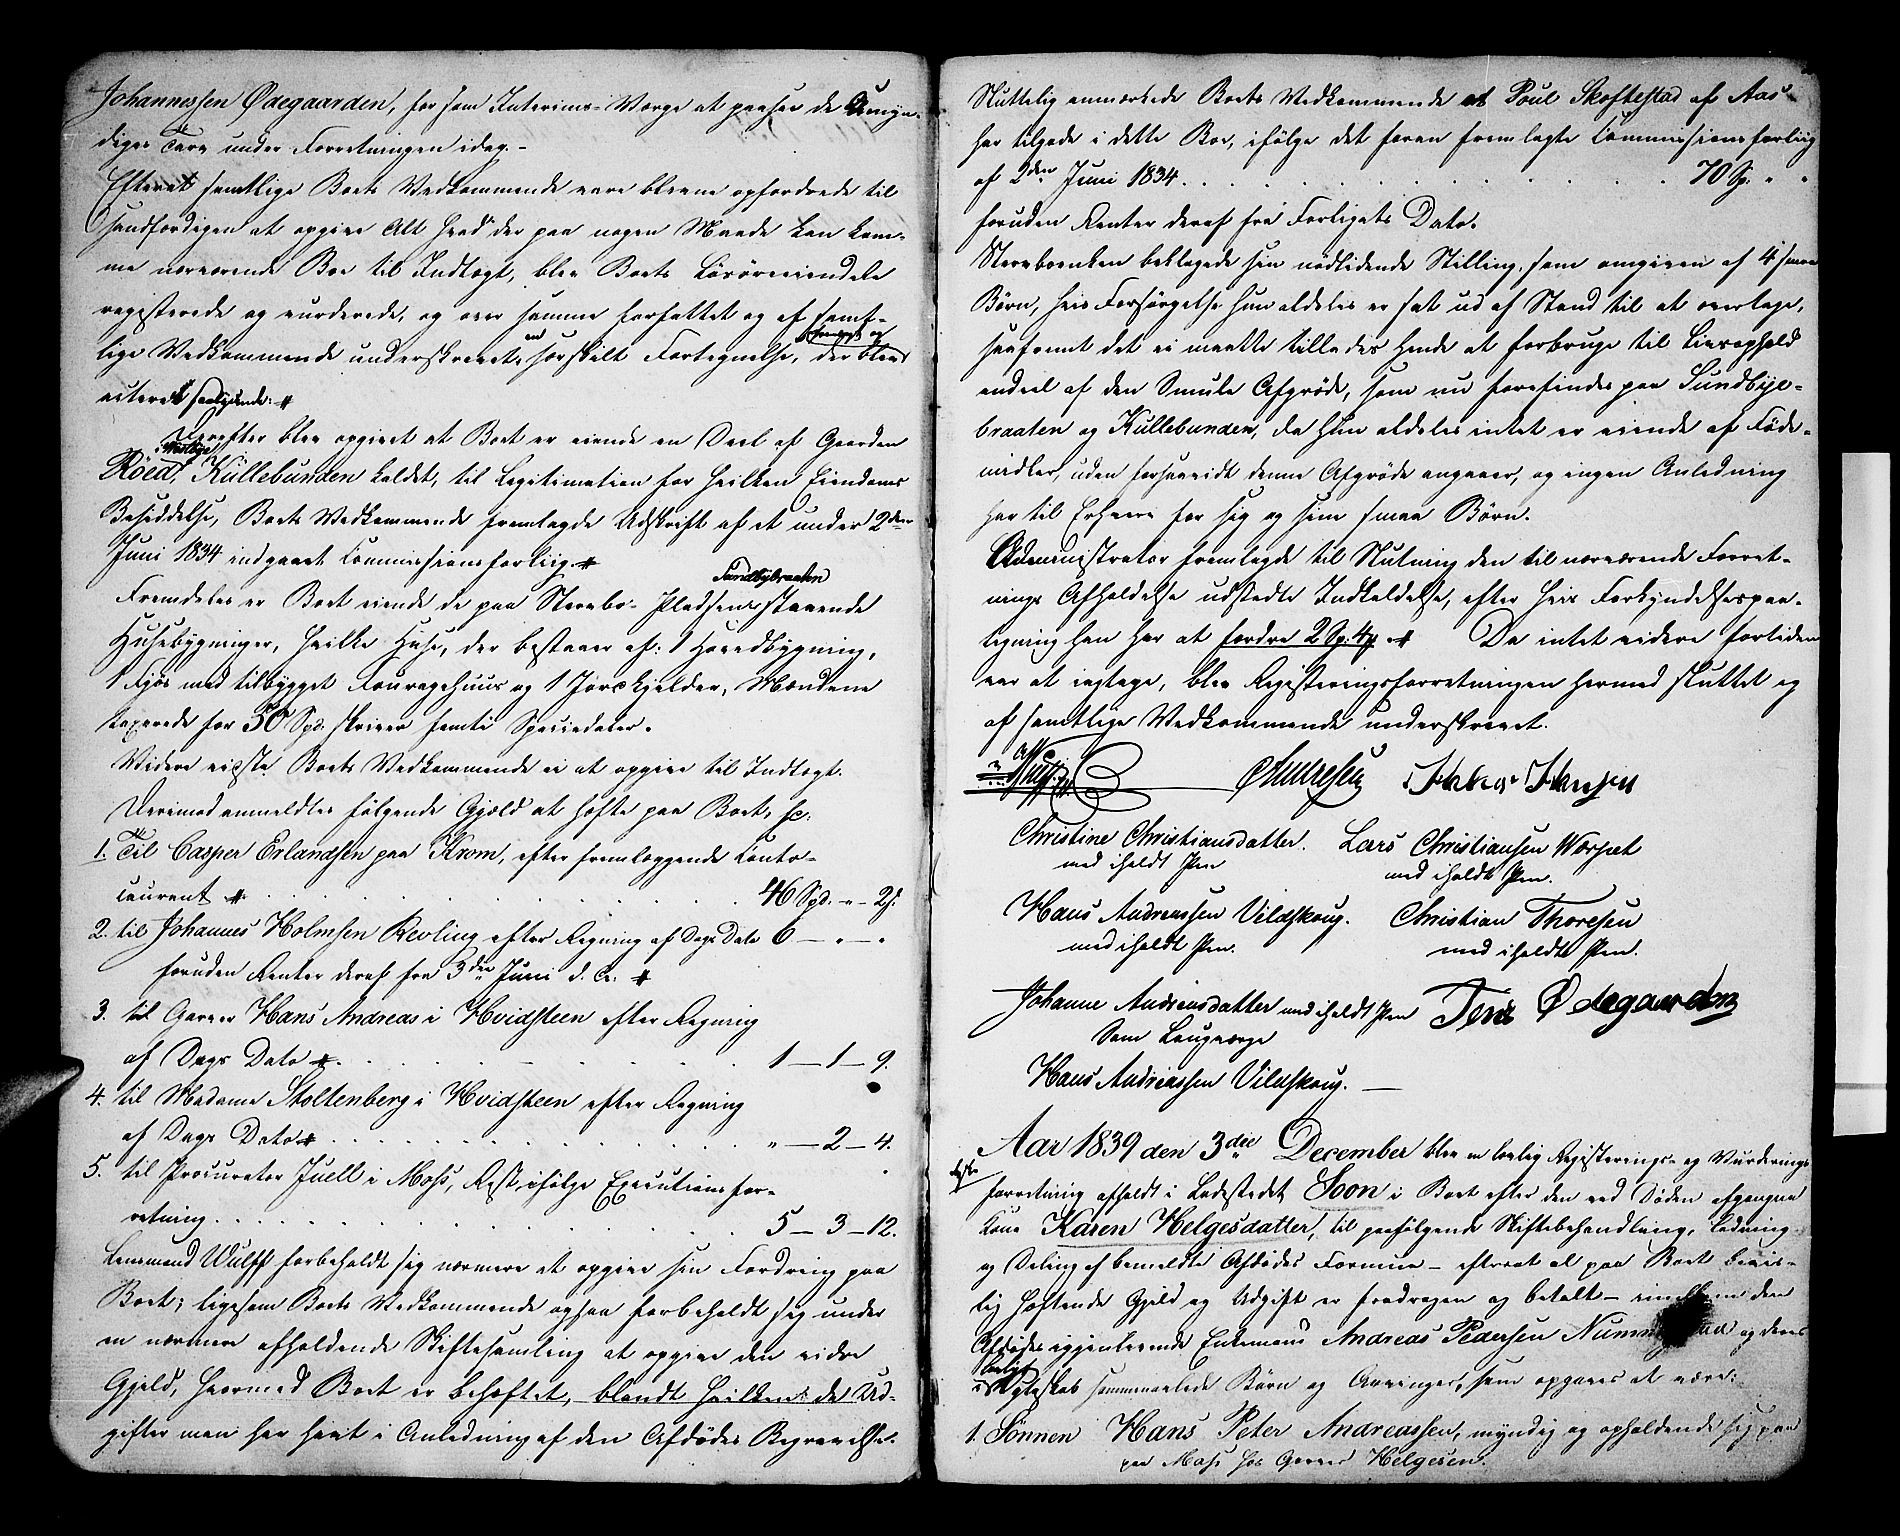 Johannessen Ødegaarden, for som Interims-Værge at paasee de Umyn-
diges Tarv under Forretningen idag.-
Efterat samtlige Boets Vedkommende vare blevne opfordrede til
sandfærdigen at opgive Alt hvad der paa nogen Maade kan kom-
me nærværende Boe til Indtægt, blev Boets Løsøreeiendele
registerede og vurderede, og over samme forfattet og af samt-
lige Vedkommende underskrevet en særskilt Fortegnelse, der blev
saalydende: #
Derefter blev opgivet at Boet er eiende en Deel af Gaarden
Røed, Kullebunden kaldet, til Legitimation for hvilken Eiendoms
Besiddelse, Boets Vedkommende fremlagde Udskrift af et under 2den
Juni 1834 indgaaet Commissionsforliig #
Fremdeles er Boet eiende de paa Stervbo-Pladsen Sundbybraaten staaende
Huusebygninger, hvilke Huse, der bestaaer af: 1 Hovedbygning,
1 Fjøs med tilbygget Fouragehuus og 1 Jordkjelder, Mændene
taxerede for 50 Spd. skriver femti Speciedaler.
Videre vidste Boets Vedkommende ei at opgive til Indtægt.
Derimod anmeldtes følgende Gjæld at hæfte paa Boet, sc:
1. Til Casper Erlandsen paa Krom, efter fremlæggende Conto-
courant # . . . 46 Spd. - " - 2 s.
2. til Johannes Holmsen Revling efter Regning af Dags Dato 6 - " - "
foruden Renter deraf fra 3die Juni d. A. #
3. til Garver Hans Andreas i Hvidsteen efter Regning
af Dags Dato # . . . 1 - 1 - 9.
4. til Madame Stoltenberg i Hvidsteen efter Regning
af Dags Dato # . . . " - 2 - 4.
5. til Procurator Juell i Moss, Rest, ifølge Executionsfor-
retning . . . 5 - 3 - 12.
Lensmand Wulff forbeholdt sig nærmere at opgive sin Fordring paa
Boet; ligesom Boets Vedkommende ogsaa forbeholdt sig under
en nærmere afholdende Skiftesamling at opgive den videre
Gjeld, hvormed Boet er behæftet, blandt hvilken de Ud-
gifter man har havt i Anledning af den Afdødes Begravelse.
Sluttelig anmærkede Boets Vedkommende at Poul Skoftestad af Aas
har tilgode i dette Boe, ifølge det foran fremlagte Commissionsforliig
af 2den Juni 1834 . . . 70 Sp. " "
foruden Renter deraf fra Forligets Dato.
Stervboenken beklagede sin nødlidende Stilling, som omgiven af 4 smaa
Børn, hvis Forsørgelse hun aldeles er sat ud af Stand til at overtage,
saafremt det ei maatte tillades hende at forbruge til Livsophold
endeel af den Smule Afgrøde, som nu forefindes paa Sundbye-
braaten og Kullebunden, da hun aldeles intet er eiende af Føde-
midler, uden forsaavidt denne Afgrøde angaaer, og ingen Anledning
har til Erhverv for sig og sine smaa Børn.
Administrator fremlagde til Slutning den til nærværende Forret-
nings Afholdelse udstedte Indkaldelse, efter hvis Forkyndelsespaa-
tegning han har at fordre 2 Sp. 4 s. # Da intet videre fortiden
var at iagttage, blev Registeringsforretningen hermed sluttet og
af samtlige Vedkommende underskrevet.
Wulff OAndresen Jakob Hansen
Christine Christiansdatter. Lars Christiansen Worpet
med iholdt Pen med iholdt Pen.
Hans Andreassen Vildskoug. Christian Thoresen
med iholdt Pen. med iholdt Pen.
Johanne Andreasdatter med iholdt Pen Jens Ødegaarden
Som Laugværge
Hans Andreassen Vildskoug.
Aar 1839 den 3die December blev en lovlig Registerings- og Vurderings
forretning afholdt i Ladestedet Soon i Boet efter den ved Døden afgangne
Kone Karen Helgesdatter, til paafølgende Skiftebehandling, Lodning
og Deling af bemeldte Afdødes Formue - efterat al paa Boet bevis-
lig hæftende Gjeld og Udgift er fradragen og betalt - imellem den
Afdødes igjenlevende Enkemand Andreas Pedersen og deres
i lovligt Ægteskab sammenavlede Børn og Arvinger, som opgaves at være:
1. Sønnen Hans Peter Andreassen, myndig og opholdende sig paa
paa Moss hos Garver Helgesen.